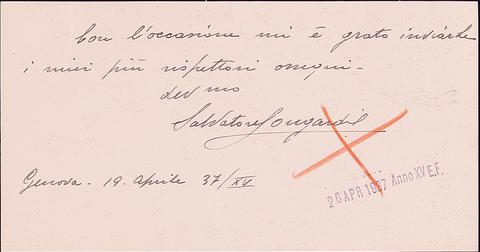 Con l'occasione mi è grato inviarLe
i miei più rispettosi ossequi -
dev mo
Salvatore Gougardil
Genova - 19. aprile 37/XV
26 APR 1937 Anno XV E.F.